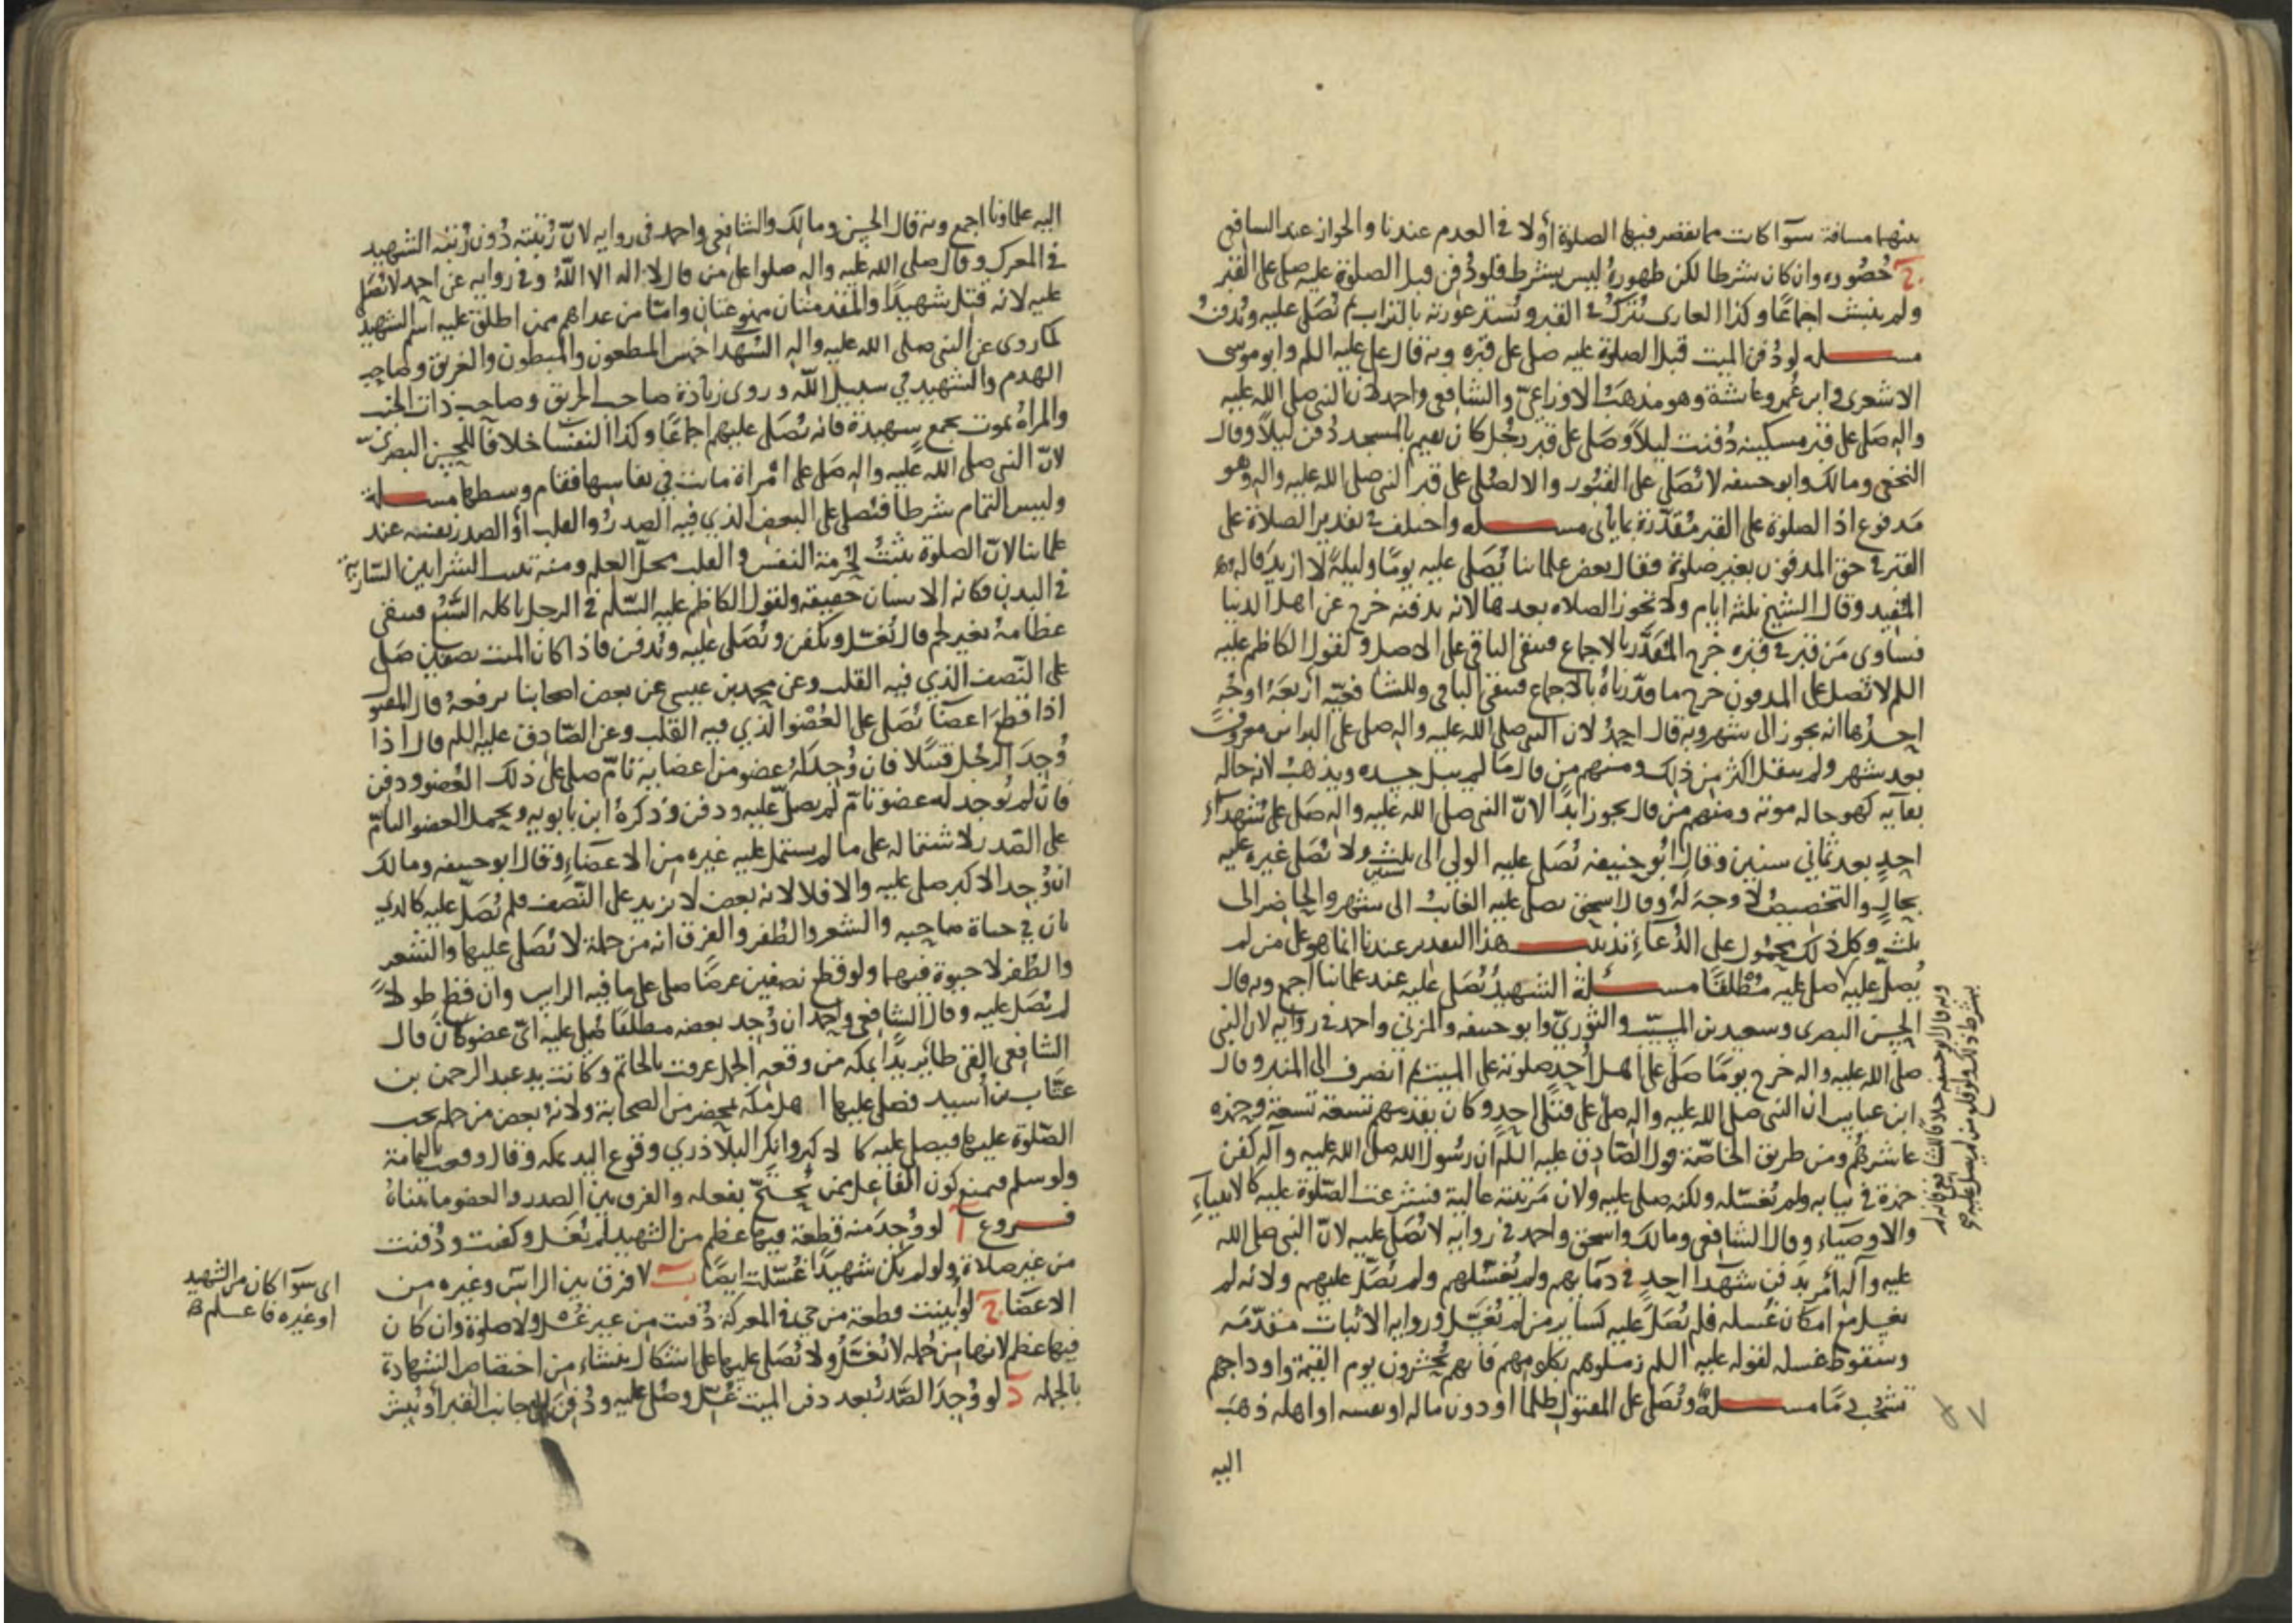 بينهما مسافة سوآ كانت مما يقصر فيها الصلوة أولا في العدم عندنا والجواز عند الشافعي
ج حضوره وان كان شرطا لكن ظهوره ليس بشرط فلو دفن قبل الصلوة عليه صلى على القبر
ولم ينبش اجماعًا وكذا العارى يترك في القبر وتستر عورته بالتراب ثم تُصَلى عليه ويُدفن
مسـله لو دُفن الميت قبل الصلوة عليه صلى على قبره وبه قال على عليه السلم وابو موسى
الاشعرى وابن عُمر وعائشة وهو مذهب الاوزاعىّ والشافعى واحمد لان النبى صلى الله عليه
واله صَلى على قبر مسكينة دُفنت ليلاً وصَلى على قبر رجُل كان يقيم بالمسجد دُفن ليلاً وقال
النخعى ومالك وابو حنيفه لا تُصَلى على القبُور والا لصُلى على قبر النبى صلى الله عليه واله وهو
مَدفوع اذ الصلوة على القبر مُقدّرة بما يأتى مسـله واختلف في تقدير الصلاة على
القبر في حق المدفون بغير صلوة فقال بعض علمائنا يُصَلى عليه يومًا وليلةً لا ازيد قاله
المُفيد وقال الشيخ ثلثة ايام ولا تجوز الصلاه بعدها لانه بدفنه خرج عن اهل الدنيا
فساوى مَن قبر في قبره خرج المُقَدَّر بالاجماع فيبقى الباقى على الاصل ولقول الكاظم عليه
السلم لا تُصل على المدفون خرج ما قدّرناه بالاجماع فيبقى الباقى وللشافعيّه أربعَةُ اوجُهٍ
احدُها انه يجوز الى شهر وبه قال احمدُ لان النبى صلى الله عليه واله صلى على البرا بن معرورٍ
بعد شهر ولم ينقل اكثر من ذلك ومنهم من قال مَا لم يبل جسده ويذهبُ لانه حاله
بقآيه كهو حاله موته ومنهم مَنْ قال يجوز ابدًا لانّ النبى صلى الله عليه واله صَلى على شهدآء
احدٍ بعد ثمانى سنين وقال أبو حنيفه تُصَلى عليه الولى الى ثلث ولا تُصَلى غيره عليه
بحالٍ والتخصيصُ لا وجهَ لهُ وقال اسحق يصلى عليه الغائبُ الى شهر والحاضر الى
ثلث وكل ذلك محمُول على الدُعآءِ تذنيب هذا التقدير عندنا انما هو على من لم
يُصلّ عليه صلى عليه مُطلقًا مسـئلة الشهيدُ تُصَلى عليه عند علمائنا اجمع وبه قال
الحسن البصرى وسعيد بن المسيّب والثورىّ وابو حنيفه والمزنىّ واحمد في روايه لان النبى
صلى الله عليه واله خرج يومًا صَلى على اهل أُحدٍ صلوته على الميت ثم انصرف الى المنبر وقال
ابن عباس ان النبى صلى الله عليه واله صلى على قتلى احدٍ وكان يقدمهم تسعة تسعة وحمزه
عاشرهُم ومن طريق الخاصّة قول الصّادق عليه السلم ان رسُول الله صلى الله عليه وآله كفن
حمزة في ثيابه ولم تغسّله ولكنه صلى عليه ولان مَرتبته عالية فشرعت الصّلوة عليه كالانبياءِ
والاوصيَاء وقال الشافعى ومالك واسحق واحمد في روايه لا تُصَلى عليه لانّ النبى صلى الله
عليه وآله أَمَر بدَفن شهَدآ احدٍ في دمَآيهم ولم يُغَسّلهم ولم يُصَلّ عليهم ولانه لم
يغسل مع امكان غُسله فلم يُصَلَّ عليه كساير من لم يُغَسَّل وروايه الاثبات مقدّمَه
وسقوط غسله لقوله عليه السلم زملوهم بكلومهم فانهم يُحشرون يوم القيمة واوداجهم
تشخُب دمًا مسـلة وتُصَلى على المقتول ظلما او دون ماله او نفسه او اهله ذهَبَ
اليه
وبه قال ابو حنيفه خلافا للشافعى فانه لم
يشرط ذلك
اليه علماؤنا اجمع وبه قال الحسن ومالك والشافعى واحمد فى روايه لانّ رُتبته دُون رُتبه الشهيد
في المعرك وقال صلى الله عليه واله صلوا على من قال لا اله الا اللهُ وفي روايه عن احمد لا تُصَلى
عليه لانه قتل شهيدًا والمقدمتان ممنوعتان وامّا من عداهم ممن اطلق عليه اسم الشهيد
كما روى عن النبى صلى الله عليه واله الشهَدا خمس المطعون والمبطون والغريق وصاحب
الهدم والشهيد في سبيل اللّه وروى زيادة صاحب الحريق وصاحب ذات الجنب
والمرأة تموت بجمع شهيدة فانه تُصَلى عليهم اجماعًا وكذا النفسا خلافًا للحسن البصرىّ
لانّ النبى صلى الله عليه واله صَلى على امْراة ماتت في نفاسها فقام وسطها مسـله
وليس التمام شرطا فتُصَلى على البعض الذي فيه الصدرُ والقلب أو الصدر نفسه عند
علمائنا لانّ الصلوة ثبتتْ لحُرمة النفس والقلب محلّ العلم ومنه تنبت الشرايين السّارية
في البدن فكانه الانسان حقيقه ولقول الكاظم عليه السّلم في الرجل ياكله السَّبُع فيبقى
عظامهُ بغير لحم قال تُغسّل ويكفن وتُصَلى عليه وتُدفن فاذا كان الميت نصفين صَلى
على النّصف الذي فيه القلب وعن محمد بن عيسى عن بعض اصحابنا يرفعهُ قال المقتول
اذا قطعَ اعضآءً تُصَلى على العُضْو الذي فيه القلب وعن الصّادق عليه السلم قال اذا
وُجِدَ الرجُل قتيلا فان وُجِدَ لهُ عضو من اعضايه تامّ صلى على ذلك العُضو ودفن
فان لم يُوجد له عضو تامّ لم يصلّ عليه ودفن وذكرهُ ابن بابويه ويحمل العضو التامّ
على الصّدر لاشتماله على ما لم يشتمل عليه غيره من الاعضَاءِ وقال ابو حنيفه ومالك
ان وُجد الاكبر صلى عليه والا فلا لانه بعض لا يزيد على النّصف فلم تُصَلّ عليه كالذي
بان في حياة صاحِبه والشعر والظفر والفرق انه من جملة لا تُصَلى عليها والشعر
والظفر لا حيوة فيهما ولو قطع نصفين عرضًا صلى على ما فيه الراس وان قطع طولاً
لم يُصَل عليه وقال الشافعى واحمد ان وُجد بعضه مطلقًا صُلى عليه اىّ عضو كانَ قال
الشافعى القى طائر يدًا بمكه من وقعه الجمل عرفت بالخاتم وكانت يد عبد الرحمن بن
عتّاب بن أسيد فصلى عليها اهل مكه بمحضر من الصحابة ولانهُ بعض من جمله يجب
الصّلوة عليها فيصلى عليه كالاكبر وانكر البلاذري وقوع اليد بمكه وقال وقعت باليمامة
ولو سلم فيمنع كون الفاعل ممن يُحْتَجّ بفعله والفرق بين الصدر والعضو ما بيناهُ
فـروع آ لو وُجِدَ منه قطعة فيها عظم من الشهيد لم تُغسَل وكفنت ودُفنت
من غير صلاة ولو لم يكن شهيدًا غُسّلت ايضًا بَ لا فرق بين الراس وغيره من
الاعضَا جَ لو أُبينت قطعة من حي في المعركة دُفنت من غير غُسْل ولا صلوة وان كان
فيها عظم لانها من جُمله لا تُغسَّل ولا تُصَلى عليها على اشكال ينشاء من اختصَاص الشهادة
بالجمله دَ لو وُجِدَ الصَّدر بعد دفن الميت غُسّل وصُلى عليه ودُفنَ الى جانب القبر أو نُبِش
اى سوآ كان من الشهيد
او غيره فاعلم